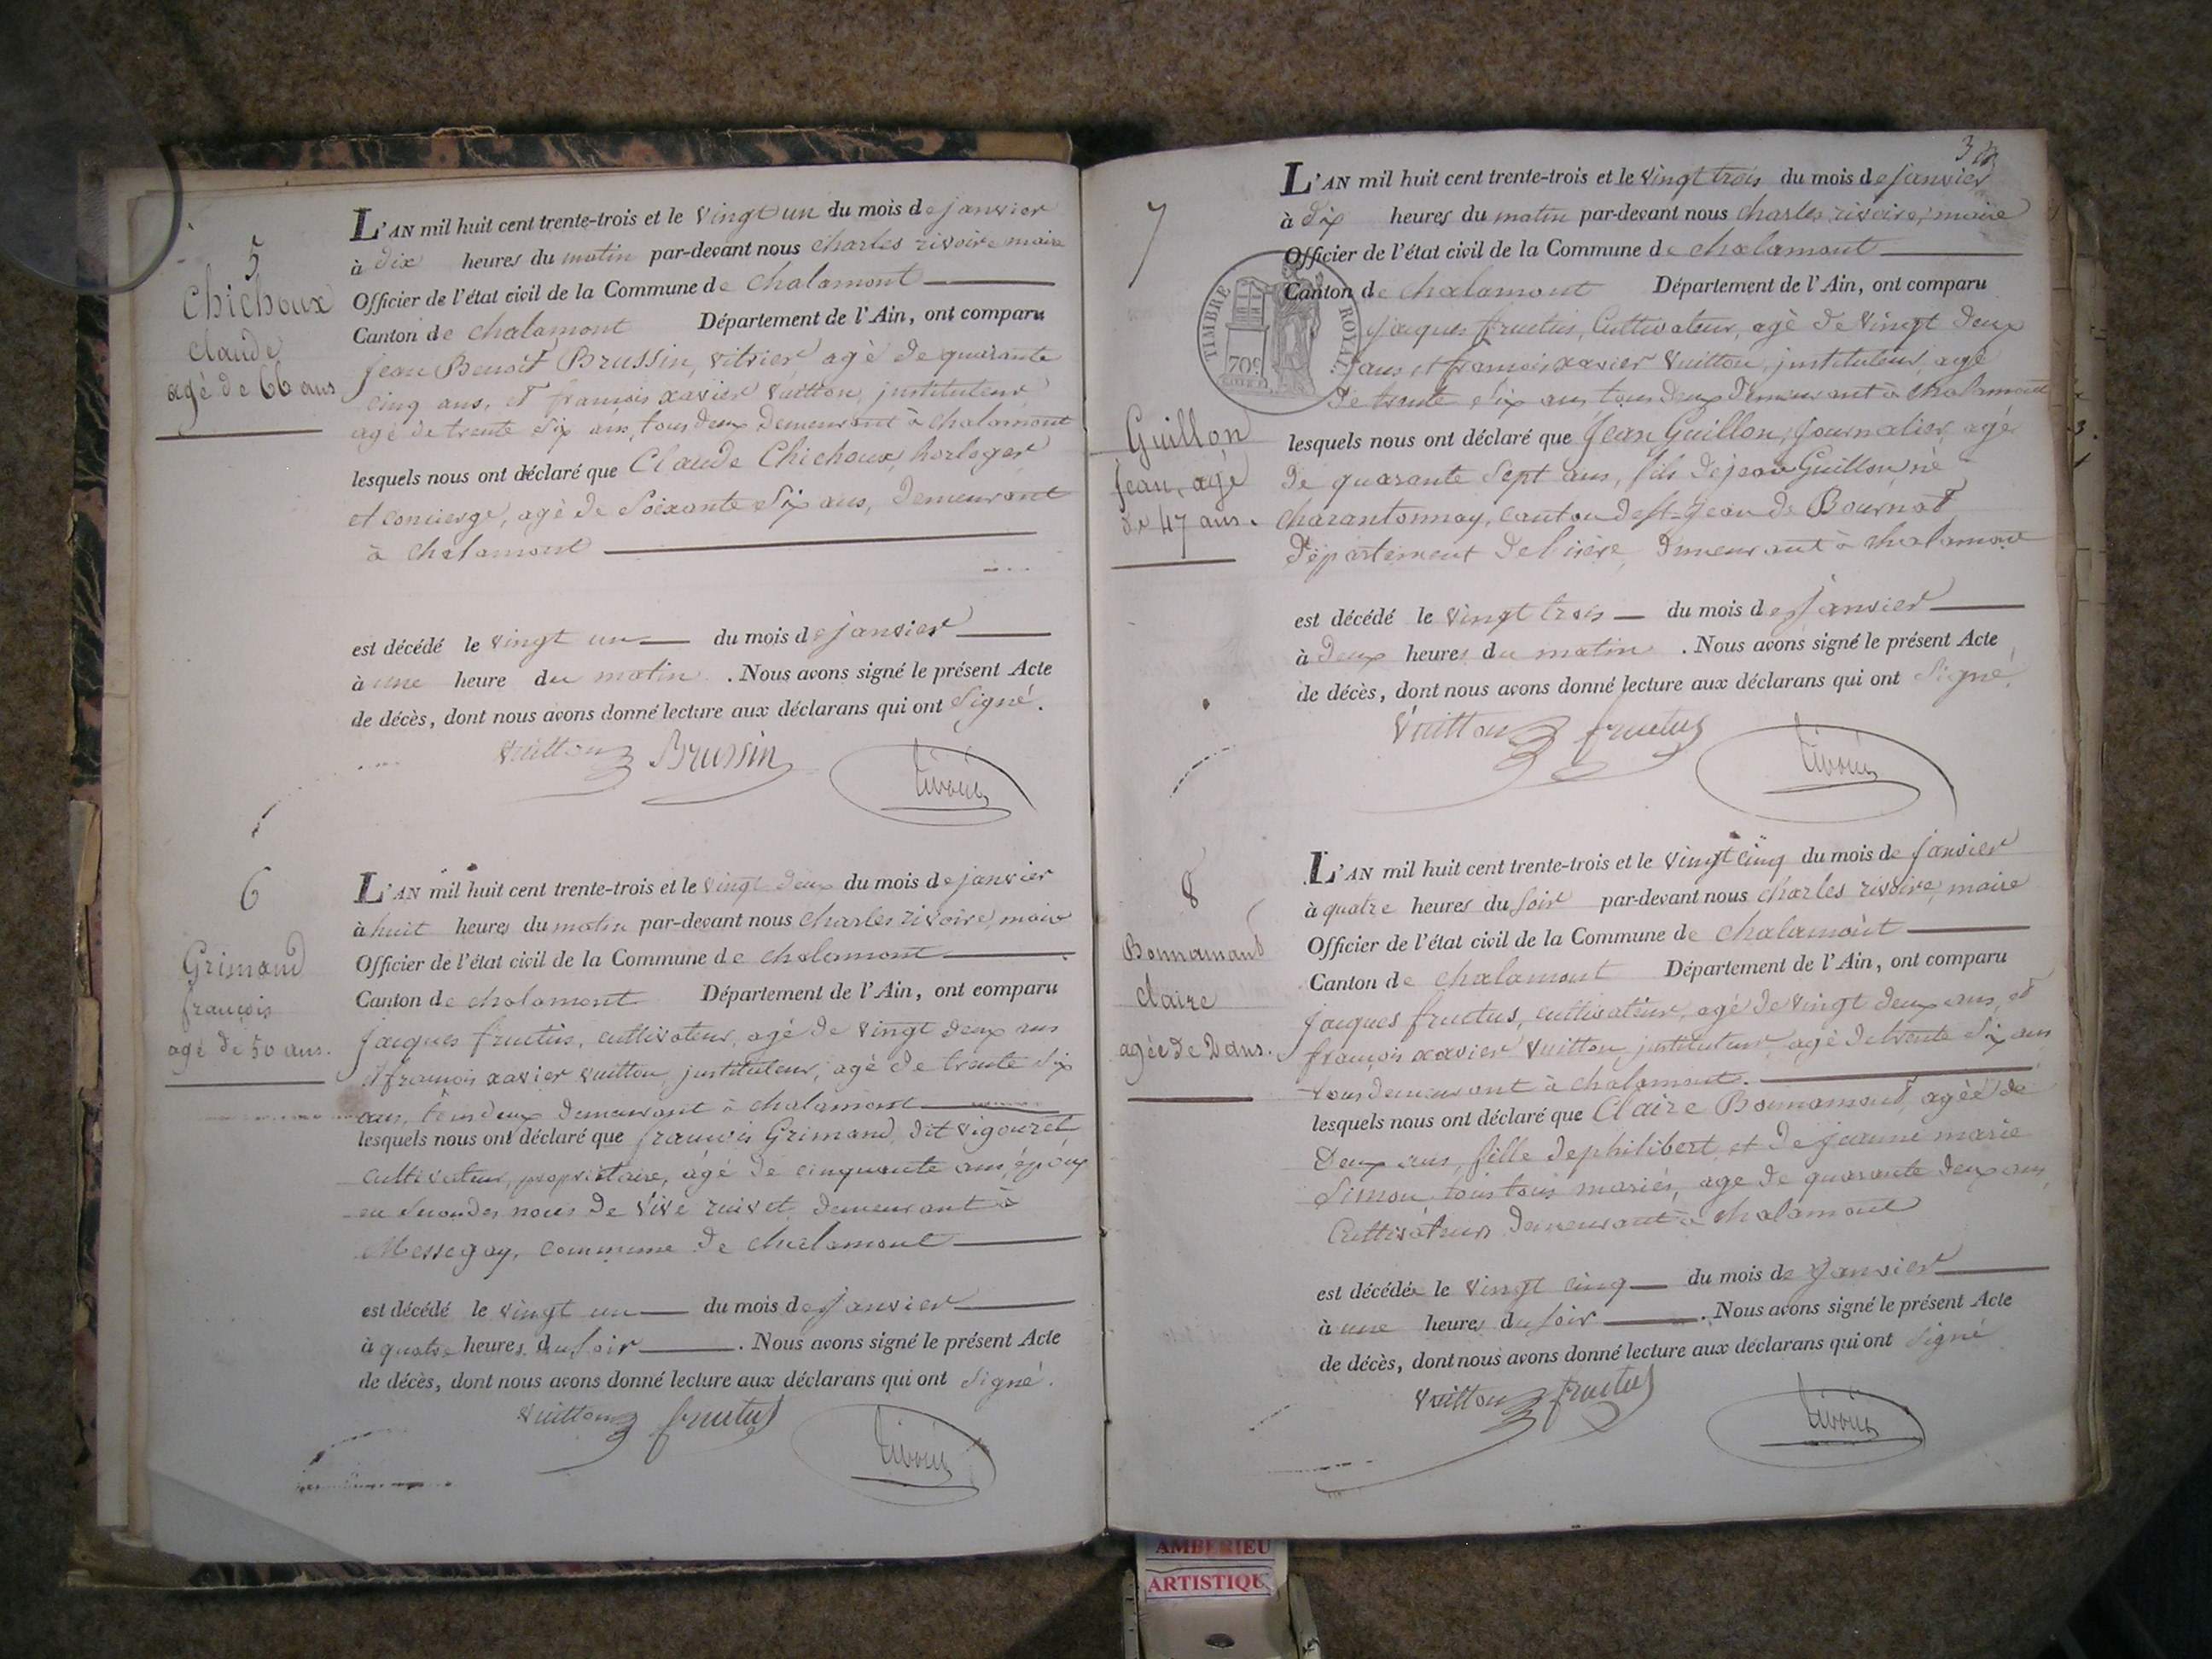 5
Chichoux
Claude
agé de 66 ans
L'AN mil huit cent trente-trois et le vingt un du mois de janvier
à dix heures du matin par-devant nous charles rivoire maire
Officier de l'état civil de la Commune de chalamont
Canton de chalamont Département de l'Ain, ont comparu
jean Benoit Brussin, vitrier, agé de quarante
cinq ans, et françois xavier Vuitton, instituteur
agé de trente six ans, tous deux demeurant à chalamont
lesquels nous ont déclaré que Claude Chichoux, horloger
et concierge, agé de soixante six ans, demeurant
à chalamont
est décédé le vingt un du mois de janvier
à une heure du matin. Nous avons signé le présent Acte
de décès, dont nous avons donné lecture aux déclarans qui ont signé.
Vuitton Brussin rivoire
6
Grimand
françois
agé de 50 ans.
L'AN mil huit cent trente-trois et le vingt deux du mois de janvier
à huit heures du matin par-devant nous charles rivoire, maire
Officier de l'état civil de la Commune de chalamont
Canton de chalamont Département de l'Ain, ont comparu
jacques fructus, cultivateur, agé de vingt deux ans
et françois xavier vuitton, instituteur, agé de trente six
ans, tous deux demeurant à chalamont
lesquels nous ont déclaré que françois Grimand, dit vigouret
cultivateur, propriétaire, agé de cinquante ans, époux
en secondes noces de demeurant à
Messegay, commune de chalamont
est décédé le vingt un du mois de janvier
à quatre heures du soir. Nous avons signé le présent Acte
de décès, dont nous avons donné lecture aux déclarans qui ont signé.
Vuitton fructus rivoire
3
7
Guillon
jean, agé
de 47 ans.
TIMBRE ROYAL
70c
L'AN mil huit cent trente-trois et le vingt trois du mois de janvier
à dix heures du matin par-devant nous charles rivoire, maire
Officier de l'état civil de la Commune de chalamont
Canton de chalamont Département de l'Ain, ont comparu
jacques fructus, cultivateur, agé de vingt deux
ans et françois xavier vuitton, instituteur, agé
de trente six ans tous deux demeurant à chalamont
lesquels nous ont déclaré que jean Guillon, journalier, agé
de quarante sept ans, fils de jean Guillon né
charantonnay, canton de st. jean de Bournat
département de l'isère, demeurant à chalamont
est décédé le vingt trois du mois de janvier
à deux heures du matin. Nous avons signé le présent Acte
de décès, dont nous avons donné lecture aux déclarans qui ont signé.
Vuitton fructus rivoire
8
Bonnamand
claire
agée de 2 ans.
L'AN mil huit cent trente-trois et le vingt cinq du mois de janvier
à quatre heures du soir par-devant nous charles rivoire, maire
Officier de l'état civil de la Commune de chalamont
Canton de chalamont Département de l'Ain, ont comparu
jacques fructus, cultivateur, agé de vingt deux ans, et
françois xavier Vuitton, instituteur, agé de trente six ans
tous demeurant à chalamont.
lesquels nous ont déclaré que Claire Bonnamand, agée de
deux ans, fille de philibert, et de jeanne marie
Simon mariés, age de quarante deux ans,
cultivateurs demeurant à chalamont
est décédée le vingt cinq du mois de janvier
à une heures du soir. Nous avons signé le présent Acte
de décès, dont nous avons donné lecture aux déclarans qui ont signé
Vuitton fructus rivoire
AMBERIEU
ARTISTIQU